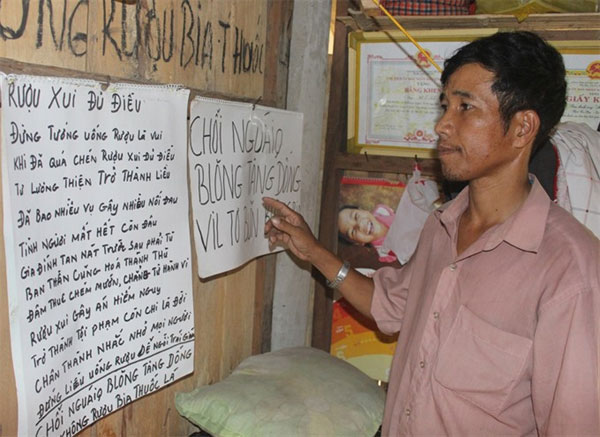 ÔNG RƯỢU BIA THUỐC
RƯỢU XUI ĐỦ ĐIỀU
ĐỪNG TƯỞNG UỐNG RƯỢU LÀ VUI
KHI ĐÃ QUÁ CHÉN RƯỢU XUI ĐỦ ĐIỀU
TỪ LƯƠNG THIỆN TRỞ THÀNH LIỀU
ĐÃ BAO NHIÊU VỤ GÂY NHIỀU NỖI ĐAU
TÌNH NGƯỜI MẤT HẾT CÒN ĐÂU
GIA ĐÌNH TAN NÁT TRƯỚC SAU PHẢI TÙ
BẢN THÂN CŨNG HOÁ THÀNH THÙ
ĐÂM THUÊ CHÉM MƯỚN, CHẲNG TỪ HÀNH VI
RƯỢU XUI GÂY ÁN HIỂM NGUY
TRỞ THÀNH TỘI PHẠM CÒN CHI LÀ ĐỜI
CHÂN THÀNH NHẮC NHỞ MỌI NGƯỜI
ĐỪNG LIỀU UỐNG RƯỢU ĐỂ NGỒI TRẠI GIAM
CHỐI NGUÁIQ BLŎNG TĂNG DÓNG
KHÔNG RƯỢU BIA THUỐC LÁ
CHỐI NGUÁIQ
BLŎNG TĂNG DÓNG
VIL TƠ
BẰNG KHEN
GIẤY K